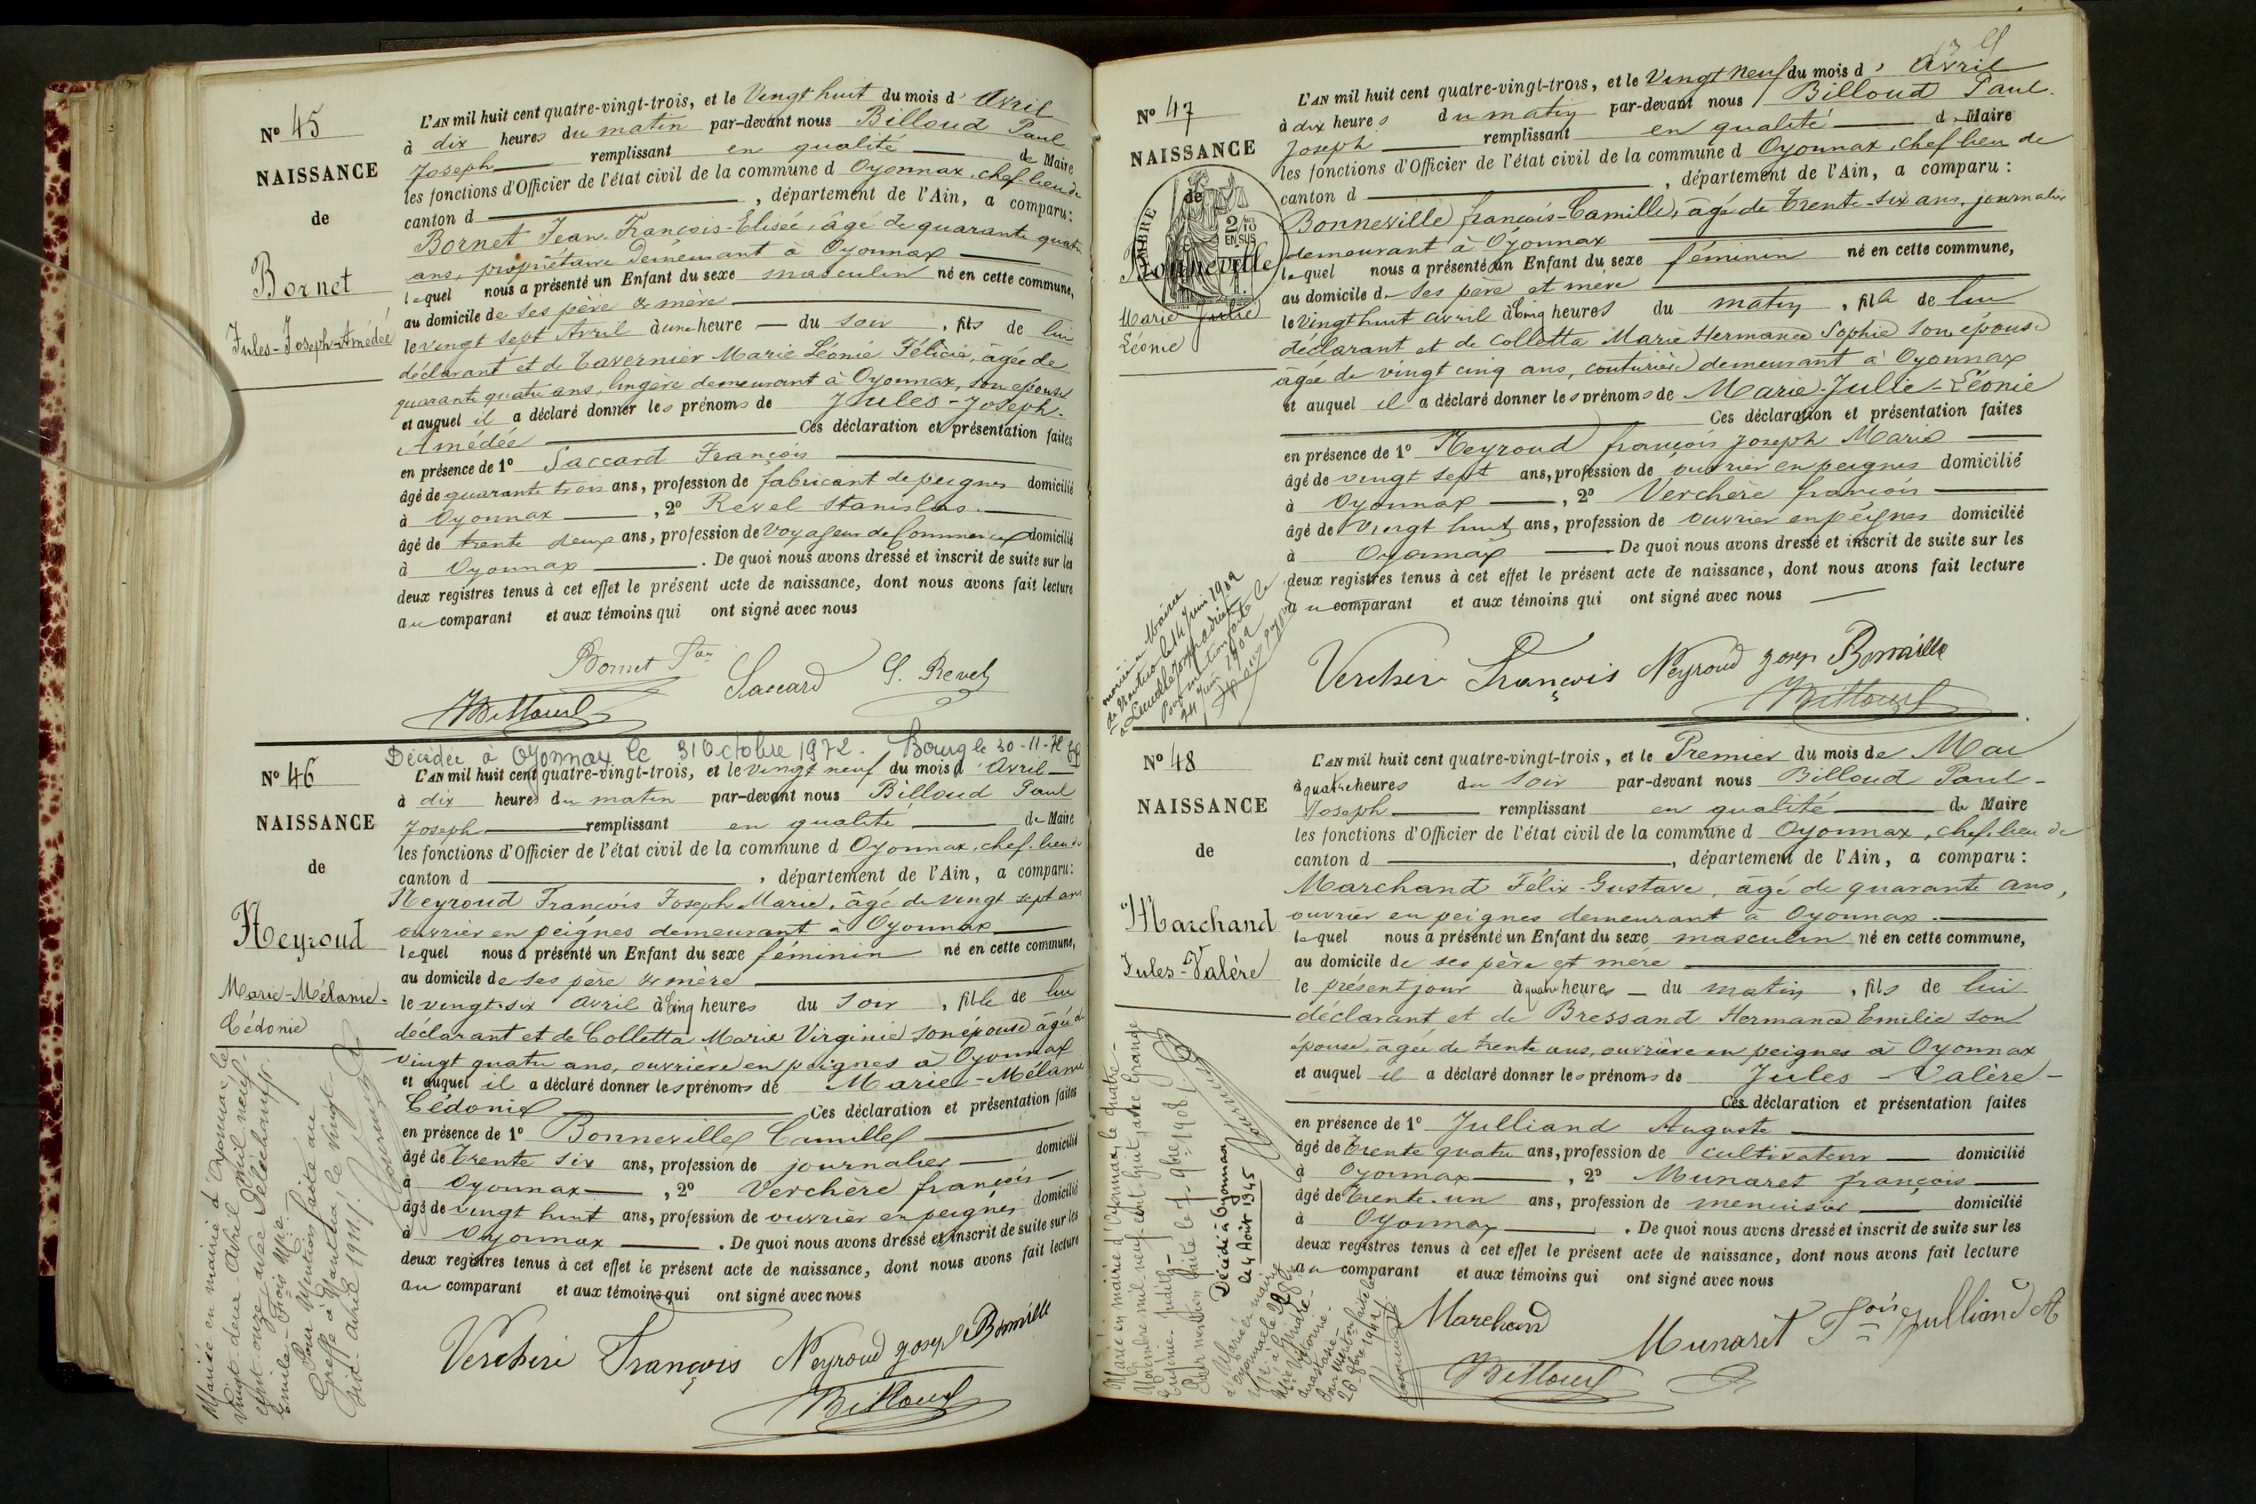 No 45
NAISSANCE
de
Bornet
Jules-Joseph-Amédée
L'AN mil huit cent quatre-vingt-trois, et le Vingt huit du mois d' Avril
à dix heures du matin par-devant nous Billoud Paul
Joseph remplissant en qualité de Maire
les fonctions d'Officier de l'état civil de la commune d Oyonnax, chef-lieu de
canton d , département de l'Ain, a comparu:
Bornet Jean-François-Elisée, âgé de quarante quatre
ans, propriétaire demeurant à Oyonnax
lequel nous a présenté un Enfant du sexe masculin né en cette commune,
au domicile de ses père & mère
le vingt sept Avril à une heure du soir, fils de lui
déclarant et de Tavernier Marie Léonie Félicie, âgée de
quarante quatre ans, lingère demeurant à Oyonnax, son épouse
et auquel il a déclaré donner les prénoms de Jules-Joseph-
Amédée Ces déclaration et présentation faites
en présence de 1o Saccard François
âgé de quarante trois ans, profession de fabricant de peignes domicilié
à Oyonnax , 2o Revel Stanislas
âgé de trente deux ans, profession de Voyageur de Commerce domicilié
à Oyonnax . De quoi nous avons dressé et inscrit de suite sur les
deux registres tenus à cet effet le présent acte de naissance, dont nous avons fait lecture
au comparant et aux témoins qui ont signé avec nous
Bornet Saccard S. Revel
Billoud
Décédée à Oyonnax le 31 Octobre 1972. Bourg le 30-11-72
No 46
NAISSANCE
de
Neyroud
Marie-Mélanie-
Cédonie
L'AN mil huit cent quatre-vingt-trois, et le vingt neuf du mois d' Avril
à dix heures du matin par-devant nous Billoud Paul
Joseph remplissant en qualité de Maire
les fonctions d'Officier de l'état civil de la commune d Oyonnax, chef-lieu de
canton d , département de l'Ain, a comparu:
Neyroud François Joseph Marie, âgé de vingt sept ans
ouvrier en peignes demeurant à Oyonnax
lequel nous a présenté un Enfant du sexe féminin né en cette commune,
au domicile de ses père & mère
le vingt-six avril à cinq heures du soir, fille de lui
déclarant et de Colletta Marie Virginie son épouse âgée de
vingt quatre ans, ouvrière en peignes à Oyonnax
et auquel il a déclaré donner les prénoms de Marie-Mélanie
Cédonie Ces déclaration et présentation faites
en présence de 1o Bonneville Camille
âgé de trente six ans, profession de journalier domicilié
à Oyonnax , 2o Verchère françois
âgé de vingt huit ans, profession de ouvrier en peignes domicilié
à Oyonnax . De quoi nous avons dressé et inscrit de suite sur les
deux registres tenus à cet effet le présent acte de naissance, dont nous avons fait lecture
au comparant et aux témoins qui ont signé avec nous
Verchère François Neyroud Joseph Bonneville
Billoud
Mariée en mairie d'Oyonnax, le
vingt-deux Avril mil neuf
cent onze, avec
Emile-
Pour Mention faite au
Greffe à Nantua, le vingt-
Avril 1911.
No 47
NAISSANCE
de
Bonneville
Marie Julie
Léonie
TIMBRE
2/10
EN SUS
L'AN mil huit cent quatre-vingt-trois, et le Vingt neuf du mois d' Avril
à dix heures du matin par-devant nous Billoud Paul
Joseph remplissant en qualité de Maire
les fonctions d'Officier de l'état civil de la commune d Oyonnax, chef lieu de
canton d , département de l'Ain, a comparu:
Bonneville françois-Camille, âgé de trente-six ans, journalier
demeurant à Oyonnax
lequel nous a présenté un Enfant du sexe féminin né en cette commune,
au domicile de ses père et mère
le Vingt huit avril à cinq heures du matin, fille de lui
déclarant et de Colletta Marie Hermance Sophie son épouse
âgée de vingt cinq ans, couturière demeurant à Oyonnax
et auquel il a déclaré donner les prénoms de Marie-Julie-Léonie
Ces déclaration et présentation faites
en présence de 1o Neyroud françois Joseph Marie
âgé de vingt sept ans, profession de ouvrier en peignes domicilié
à Oyonnax , 2o Verchère françois
âgé de vingt huit ans, profession de ouvrier en peignes domicilié
à Oyonnax De quoi nous avons dressé et inscrit de suite sur les
deux registres tenus à cet effet le présent acte de naissance, dont nous avons fait lecture
au comparant et aux témoins qui ont signé avec nous
Verchère François Neyroud Joseph Bonneville
Billoud
mariée en Mairie
le 14 Juin 1902
Pour mention faite le
24 Juin 1902
No 48
NAISSANCE
de
Marchand
Jules-Valère
L'AN mil huit cent quatre-vingt-trois, et le Premier du mois de Mai
à quatre heures du soir par-devant nous Billoud Paul-
Joseph remplissant en qualité de Maire
les fonctions d'Officier de l'état civil de la commune d Oyonnax, chef-lieu de
canton d , département de l'Ain, a comparu:
Marchand Félix-Gustave, âgé de quarante ans,
ouvrier en peignes demeurant à Oyonnax
lequel nous a présenté un Enfant du sexe masculin né en cette commune,
au domicile de ses père et mère
le présent jour à quatre heures du matin, fils de lui
déclarant et de Bressand Hermance Emilie son
épouse, âgée de trente ans, ouvrière en peignes à Oyonnax
et auquel il a déclaré donner les prénoms de Jules-Valère-
Ces déclaration et présentation faites
en présence de 1o Julliand Auguste
âgé de trente quatre ans, profession de cultivateur domicilié
à Oyonnax , 2o Munaret françois
âgé de trente-un ans, profession de menuisier domicilié
à Oyonnax . De quoi nous avons dressé et inscrit de suite sur les
deux registres tenus à cet effet le présent acte de naissance, dont nous avons fait lecture
au comparant et aux témoins qui ont signé avec nous
Marchand Munaret Fois Julliand A
Billoud
Marié en mairie d'Oyonnax, le quatre-
Novembre mil neuf cent huit, avec Grange
Eugénie-Judith-
Pour mention faite le 7 9bre 1908
Décédé à Oyonnax
le 4 Août 1945